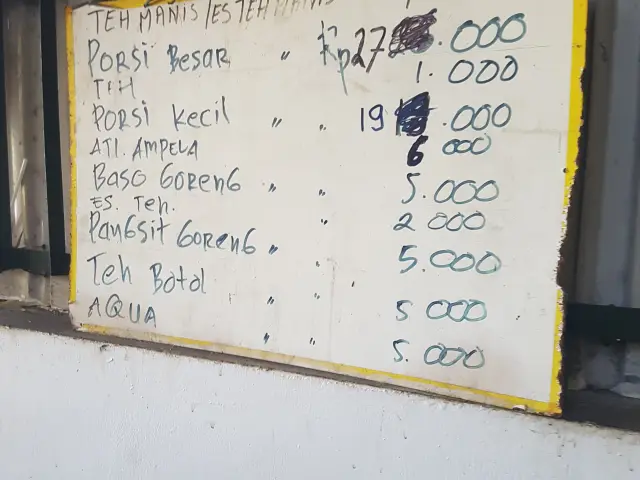 TEH MANIS / ES TEH MANIS
PORSI BESAR " Rp 27 .000
TEH 1.000
PORSI KECIL " " 19 .000
ATI. AMPELA 6 000
BASO GORENG " " 5.000
ES. TEH. " 2 000
PANGSIT GORENG " " 5.000
TEH BOTOL " " 5 000
AQUA " " 5.000